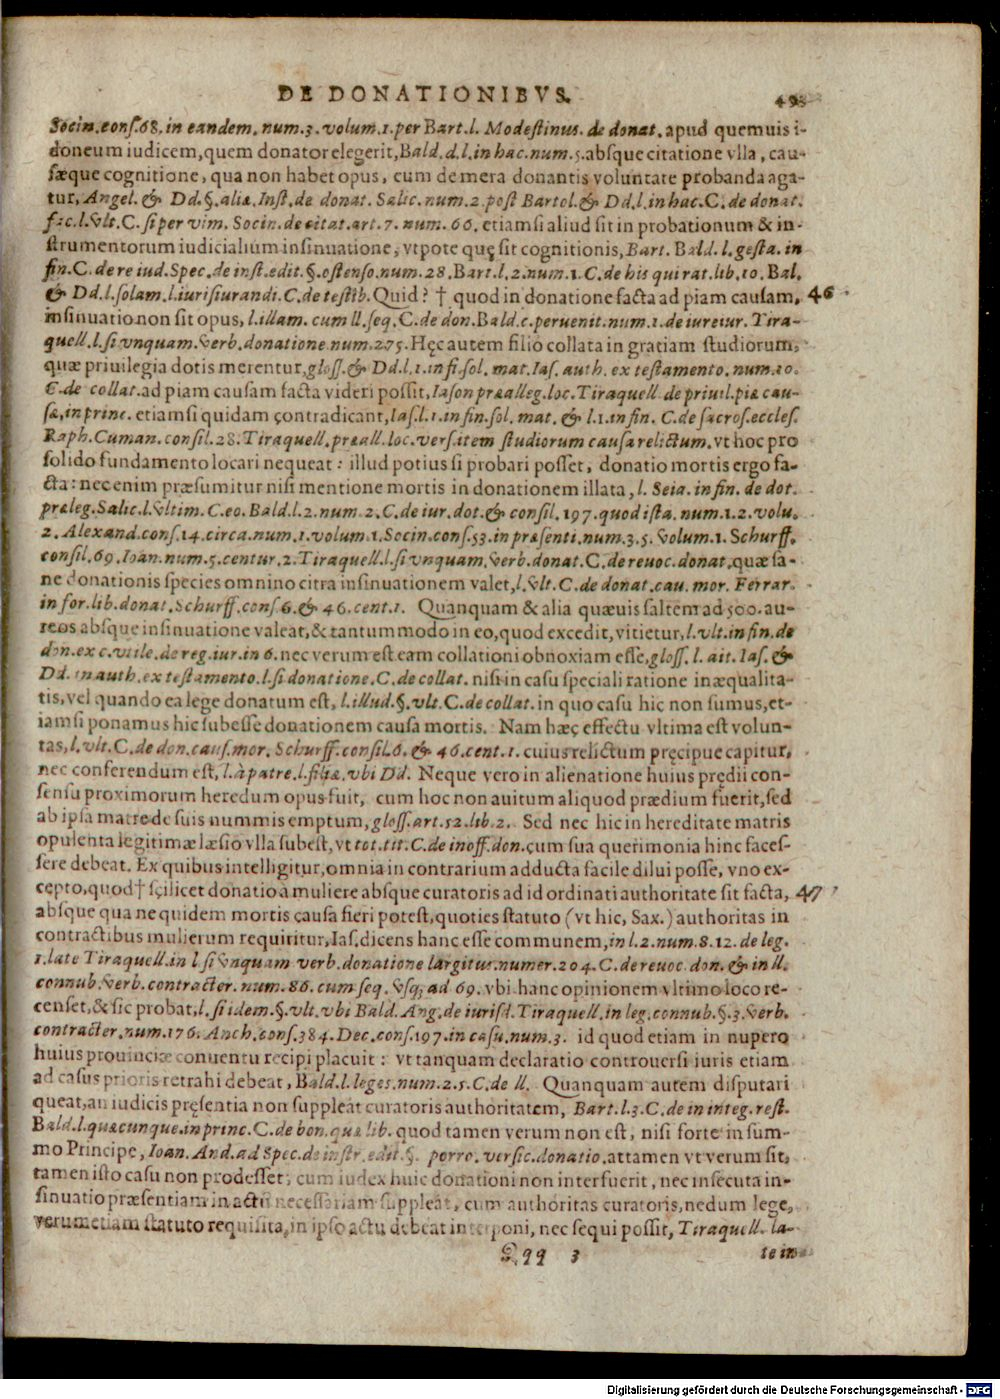 DE DONATIONIBVS.
Socin.cons.68. in eandem. num.3. volum.1. per Bart.l. Modestinus. de donat. apud quemuis i-
doneum iudicem, quem donator elegerit, Bald. d.l. in hac. num.5. absque citatione vlla, cau-
sæque cognitione, qua non habet opus, cum de mera donantis voluntate probanda aga-
tur, Angel. & Dd. §. aliæ. Inst. de donat. Salic. num.2. post Bartol. & Dd. l. in hac. C. de donat.
fac. l. vlt. C. si per vim. Socin. de citat. art. 7. num. 66. etiamsi aliud sit in probationum & in-
strumentorum iudicialium insinuatione, vtpote quę sit cognitionis, Bart. Bald. l. gesta. in
fin. C. de re iud. Spec. de inst. edit. §. ostenso. num. 28. Bart. l. 2. num. 1. C. de his qui rat. lib. 10. Bal.
& Dd. l. solam. l. iurisiurandi. C. de testib. Quid? † quod in donatione facta ad piam causam, 46
insinuatio non sit opus, l. illam. cum ll. seq. C. de don. Bald. c. peruenit. num. 1. de iureiur. Tira-
quell. l. si vnquam. verb. donatione. num. 275. Hęc autem filio collata in gratiam studiorum,
quæ priuilegia dotis merentur, gloss. & Dd. l. 1. in fi. sol. mat. Ias. auth. ex testamento. num. 10.
C. de collat. ad piam causam facta videri possit, Iason præalleg. loc. Tiraquell. de priuil. piæ cau-
sæ, in princ. etiamsi quidam contradicant, Ias. l. 1. in fin. sol. mat. & l. 1. in fin. C. de sacros. eccles.
Raph. Cuman. consil. 28. Tiraquell. præall. loc. vers. item studiorum causa relictum. vt hoc pro
solido fundamento locari nequeat: illud potius si probari posset, donatio mortis ergo fa-
cta: nec enim præsumitur nisi mentione mortis in donationem illata, l. Seia. in fin. de dot.
præleg. Salic. l. vltim. C. eo. Bald. l. 2. num. 2. C. de iur. dot. & consil. 197. quod ista. num. 1. 2. volu.
2. Alexand. cons. 14. circa. num. 1. volum. 1. Socin. cons. 53. in præsenti. num. 3. 5. volum. 1. Schurff.
consil. 69. Ioan. num. 5. centur. 2. Tiraquell. l. si vnquam. verb. donat. C. de reuoc. donat, quæ sa-
ne donationis species omnino citra insinuationem valet, l. vlt. C. de donat. cau. mor. Ferrar.
in for. lib. donat. Schurff. cons. 6. & 46. cent. 1. Quanquam & alia quæuis saltem ad 500. au-
reos absque insinuatione valeat, & tantummodo in eo, quod excedit, vitietur, l. vlt. in fin. de
don. ex c. vtile. de reg. iur. in 6. nec verum est eam collationi obnoxiam esse, gloss. l. ait. Ias. &
Dd. in auth. ex testamento. l. si donatione. C. de collat. nisi in casu speciali ratione inæqualita-
tis, vel quando ea lege donatum est, l. illud. §. vlt. C. de collat. in quo casu hic non sumus, et-
iamsi ponamus hic subesse donationem causa mortis. Nam hæc effectu vltima est volun-
tas, l. vlt. C. de don. caus. mor. Schurff. consil. 6. & 46. cent. 1. cuius relictum pręcipue capitur,
nec conferendum est, l. à patre. l. filiæ. vbi Dd. Neque vero in alienatione huius prędii con-
sensu proximorum heredum opus fuit, cum hoc non auitum aliquod prædium fuerit, sed
ab ipsa matre de suis nummis emptum, gloss. art. 52. lib. 2. Sed nec hic in hereditate matris
opulenta legitimæ læsio vlla subest, vt tot. tit. C. de inoff. don. cum sua querimonia hinc faces-
sere debeat. Ex quibus intelligitur, omnia in contrarium adducta facile dilui posse, vno ex-
cepto, quod † scilicet donatio à muliere absque curatoris ad id ordinati authoritate sit facta, 47
absque qua ne quidem mortis causa fieri potest, quoties statuto (vt hic, Sax.) authoritas in
contractibus mulierum requiritur, Ias. dicens hanc esse communem, in l. 2. num. 8. 12. de leg.
1. late Tiraquell. in l. si vnquam verb. donatione largitus. numer. 204. C. de reuoc. don. & in ll.
connub. verb. contracter. num. 86. cum seq. vsq; ad 69. vbi hanc opinionem vltimo loco re-
censet, & sic probat, l. si idem. §. vlt. vbi Bald. Ang. de iurisd. Tiraquell. in leg. connub. §. 3. verb.
contracter. num. 176. Anch. cons. 384. Dec. cons. 197. in casu. num. 3. id quod etiam in nupero
huius prouinciæ conuentu recipi placuit: vt tanquam declaratio controuersi iuris etiam
ad casus prioris retrahi debeat, Bald. l. leges. num. 2. 5. C. de ll. Quanquam autem disputari
queat, an iudicis pręsentia non suppleat curatoris authoritatem, Bart. l. 3. C. de in integ. rest.
Bald. l. quæcunque. in princ. C. de bon. quæ lib. quod tamen verum non est, nisi forte in sum-
mo Principe, Ioan. And. ad Spec. de instr. edit. §. porro. versic. donatio. attamen vt verum sit,
tamen isto casu non prodesset, cum iudex huic donationi non interfuerit, nec insecuta in-
sinuatio præsentiam in actu necessariam suppleat, cum authoritas curatoris, nedum lege,
verumetiam statuto requisita, in ipso actu debeat interponi, nec sequi possit, Tiraquell. la-
Qqq 3 te in
Digitalisierung gefördert durch die Deutsche Forschungsgemeinschaft - DFG